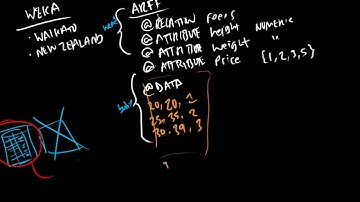 WEKA
• WAIKATO
• NEW ZEALAND
ARFF
@ RELATION Foods
@ ATTRIBUTE height NUMERIC
@ ATTRIBUTE weight "
@ ATTRIBUTE Price {1,2,3,5}
@DATA
20, 20, 1
25, 35, 2
30, 39, 3